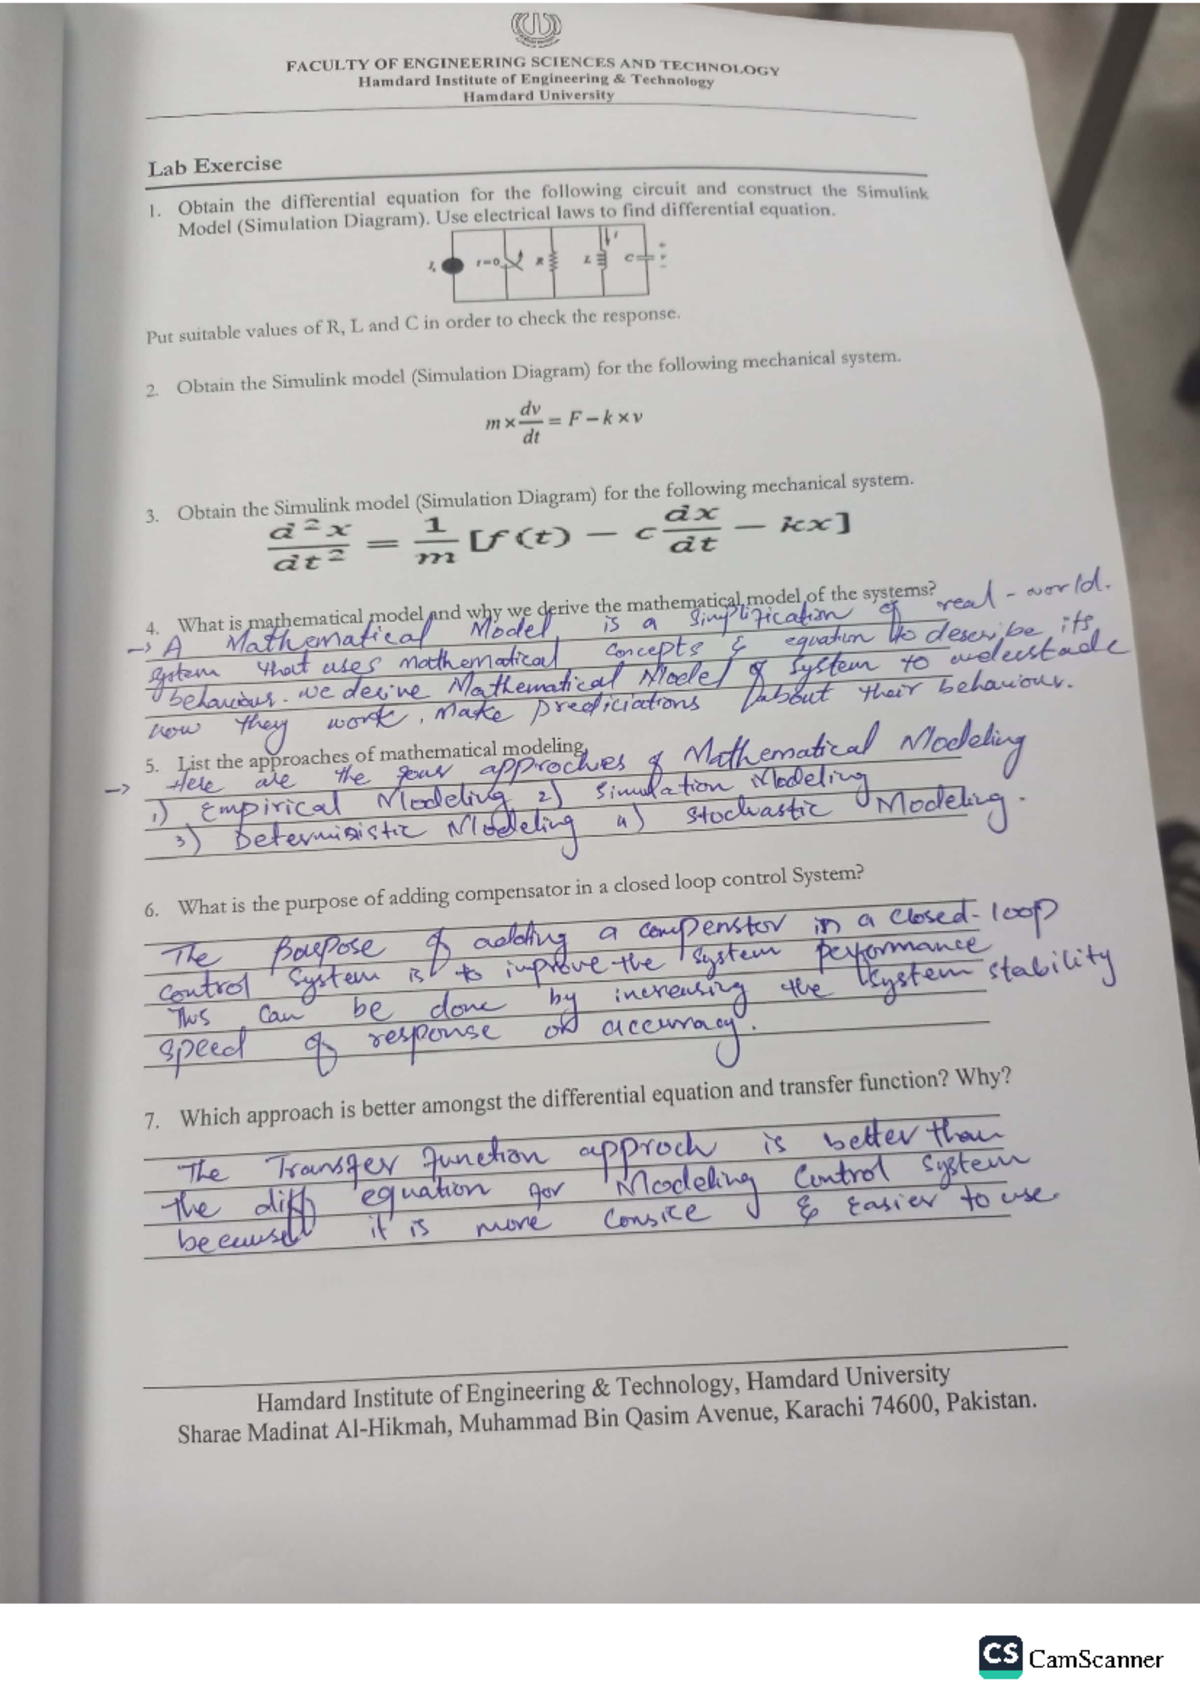 FACULTY OF ENGINEERING SCIENCES AND TECHNOLOGY
Hamdard Institute of Engineering & Technology
Hamdard University
Lab Exercise
1. Obtain the differential equation for the following circuit and construct the Simulink
Model (Simulation Diagram). Use electrical laws to find differential equation.
t=0 R L C
Put suitable values of R, L and C in order to check the response.
2. Obtain the Simulink model (Simulation Diagram) for the following mechanical system.
m × dv/dt = F − k × v
3. Obtain the Simulink model (Simulation Diagram) for the following mechanical system.
d²x/dt² = 1/m [f(t) − c dx/dt − kx]
4. What is mathematical model and why we derive the mathematical model of the systems?
→ A Mathematical Model is a Simplification of real-world.
system that uses mathematical concepts & equation to describe its
behaviour. we derive Mathematical Model of System to understade
how they work, make prediciations about their behaviour.
5. List the approaches of mathematical modeling.
→ Here are the four approches of Mathematical Modeling
1) Empirical Modeling 2) Simulation Modeling
3) Deterministic Modeling 4) Stochastic Modeling.
6. What is the purpose of adding compensator in a closed loop control System?
The Pourpose of adding a compenstor in a closed-loop
control System is to improve the System performance
This can be done by increasing the System stability
speed of response or accuracy.
7. Which approach is better amongst the differential equation and transfer function? Why?
The Transfer function approch is better than
the diff equation for Modeling Control System
because it is more Consice & Easier to use.
Hamdard Institute of Engineering & Technology, Hamdard University
Sharae Madinat Al-Hikmah, Muhammad Bin Qasim Avenue, Karachi 74600, Pakistan.
CS CamScanner